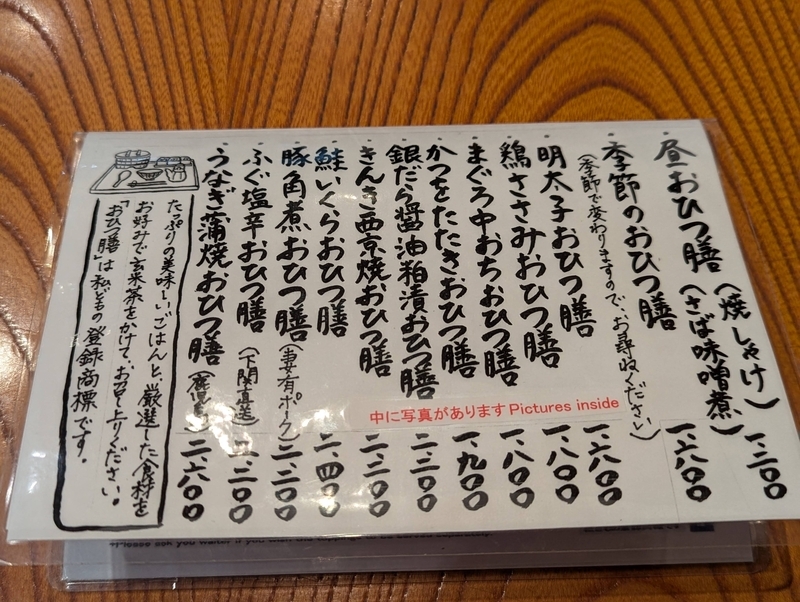 昼おひつ膳(焼しゃけ)(さば味噌煮) 一、二〇〇
季節のおひつ膳 一、六〇〇
(季節で変わりますので、お尋ねください)
明太子おひつ膳 一、六〇〇
鶏ささみおひつ膳 一、八〇〇
まぐろ中おちおひつ膳 一、八〇〇
かつをたたきおひつ膳 一、九〇〇
銀だら醤油粕漬おひつ膳 二、二〇〇
きんき西京焼おひつ膳 二、二〇〇
鮭いくらおひつ膳 二、四〇〇
豚角煮おひつ膳(妻有ポーク) 二、二〇〇
ふぐ塩辛おひつ膳(下関直送) 二、二〇〇
うなぎ蒲焼おひつ膳(鹿児島) 二、六〇〇
たっぷりの美味しいごはんと、厳選した食材を
お好みで玄米茶をかけて、お召し上りください。
「おひつ膳」は私どもの登録商標です。
中に写真があります Pictures inside